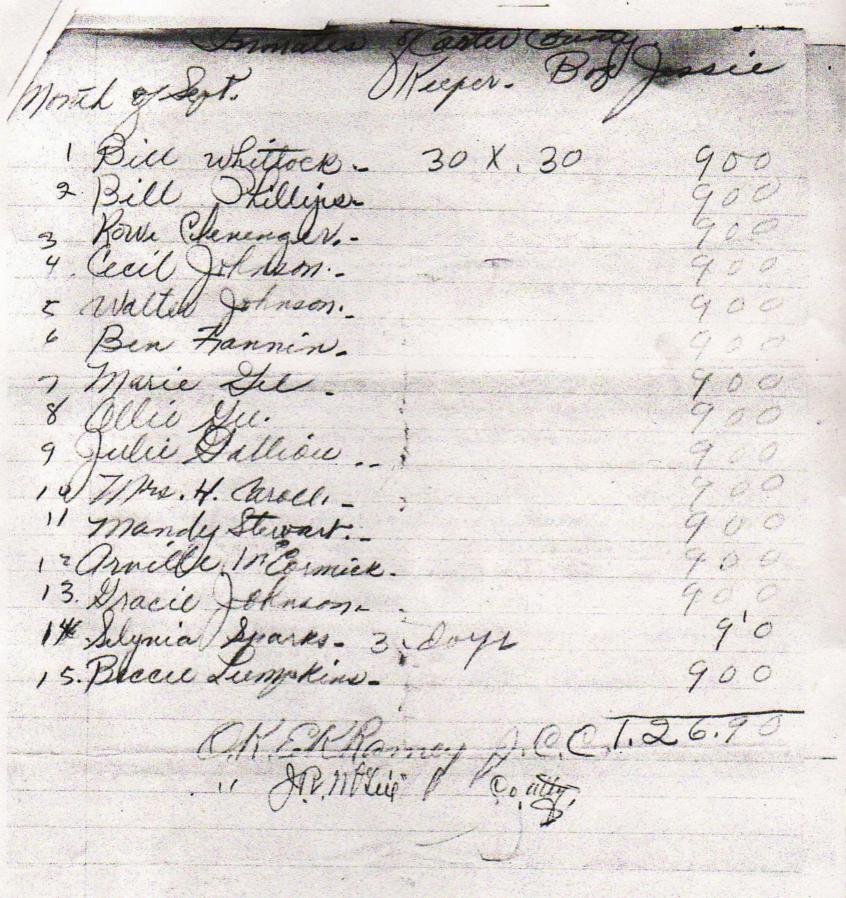 Inmates of Carter County
Month of Sept. Keeper. Boy Jessie
1 Bill Whittock - 30 X .30 900
2 Bill Phillips - 900
3 Rowe 900
4. Cecil Johnson. - 900
5 Walter Johnson. - 900
6 Ben Fannin. - 900
7 Marie Gee - 900
8 Ollie Gee. 900
9 Julie 900
10 Mrs. H. 900
11 Mandy Stewart. - 900
12 Arville McCormick. 900
13. Gracie Johnson - 900
14 Sparks - 3 days 90
15. Lumpkins - 900
O.K. E K Ramey J.C.C. 126.90
" Co Atty.